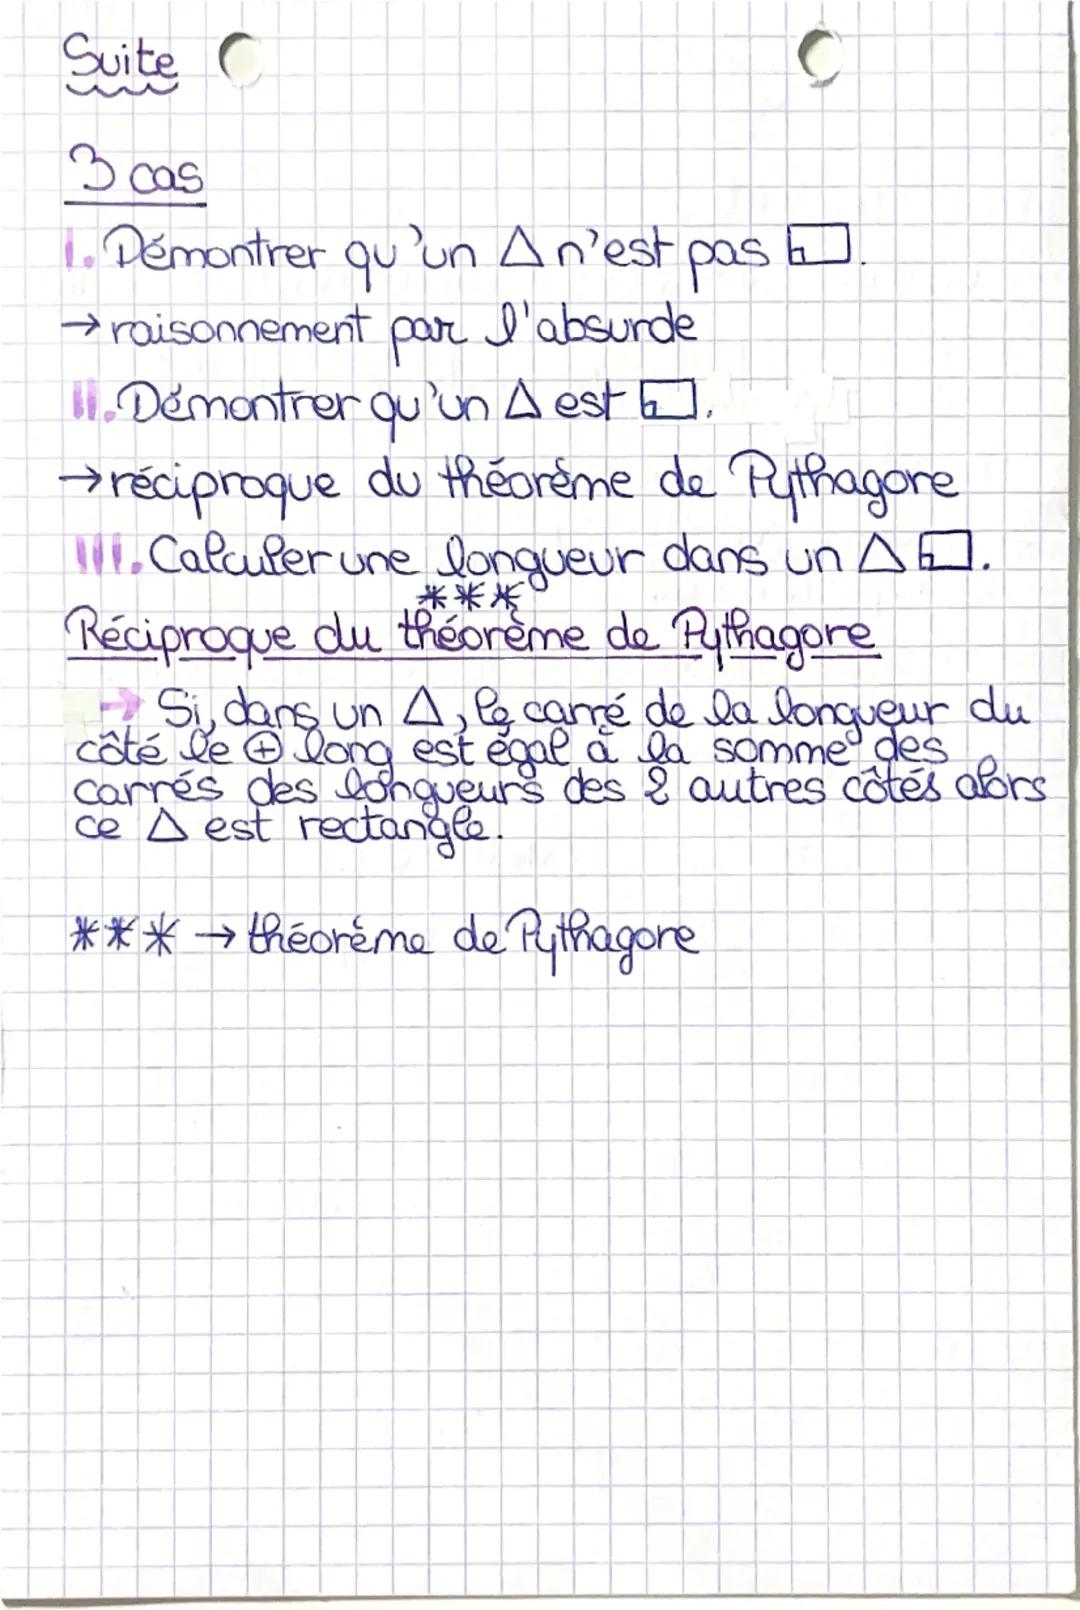 Suite
3 cas
I. Démontrer qu'un △ n'est pas ▭.
→ raisonnement par l'absurde
II. Démontrer qu'un △ est ▭.
→ réciproque du théorème de Pythagore
III. Calculer une longueur dans un △ ▭.
***
Réciproque du théorème de Pythagore
→ Si, dans un △, le carré de la longueur du
côté le ⊕ long est égal à la somme des
carrés des longueurs des 2 autres côtés alors
ce △ est rectangle.
*** → théorème de Pythagore